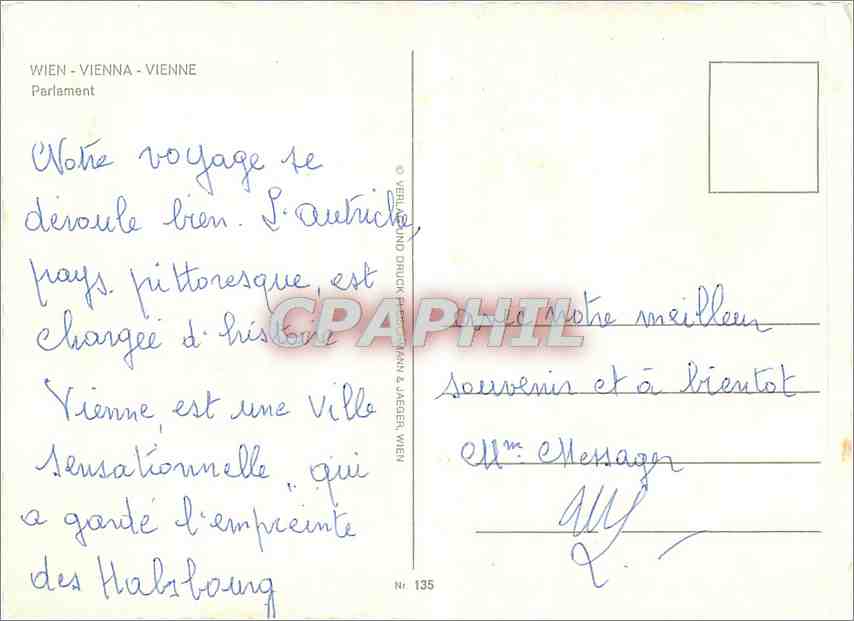 WIEN - VIENNA - VIENNE
Parlament
Notre voyage se
déroule bien. L'autriche,
pays pittoresque, est
chargée d'histoire
Vienne, est une ville
sensationnelle, qui
a gardé l'empreinte
des Habsbourg
© VERLAG UND DRUCK FLEISCHMANN & JAEGER, WIEN
Nr. 135
CPAPHIL
avec notre meilleur
souvenir et à bientot
Mme Messager